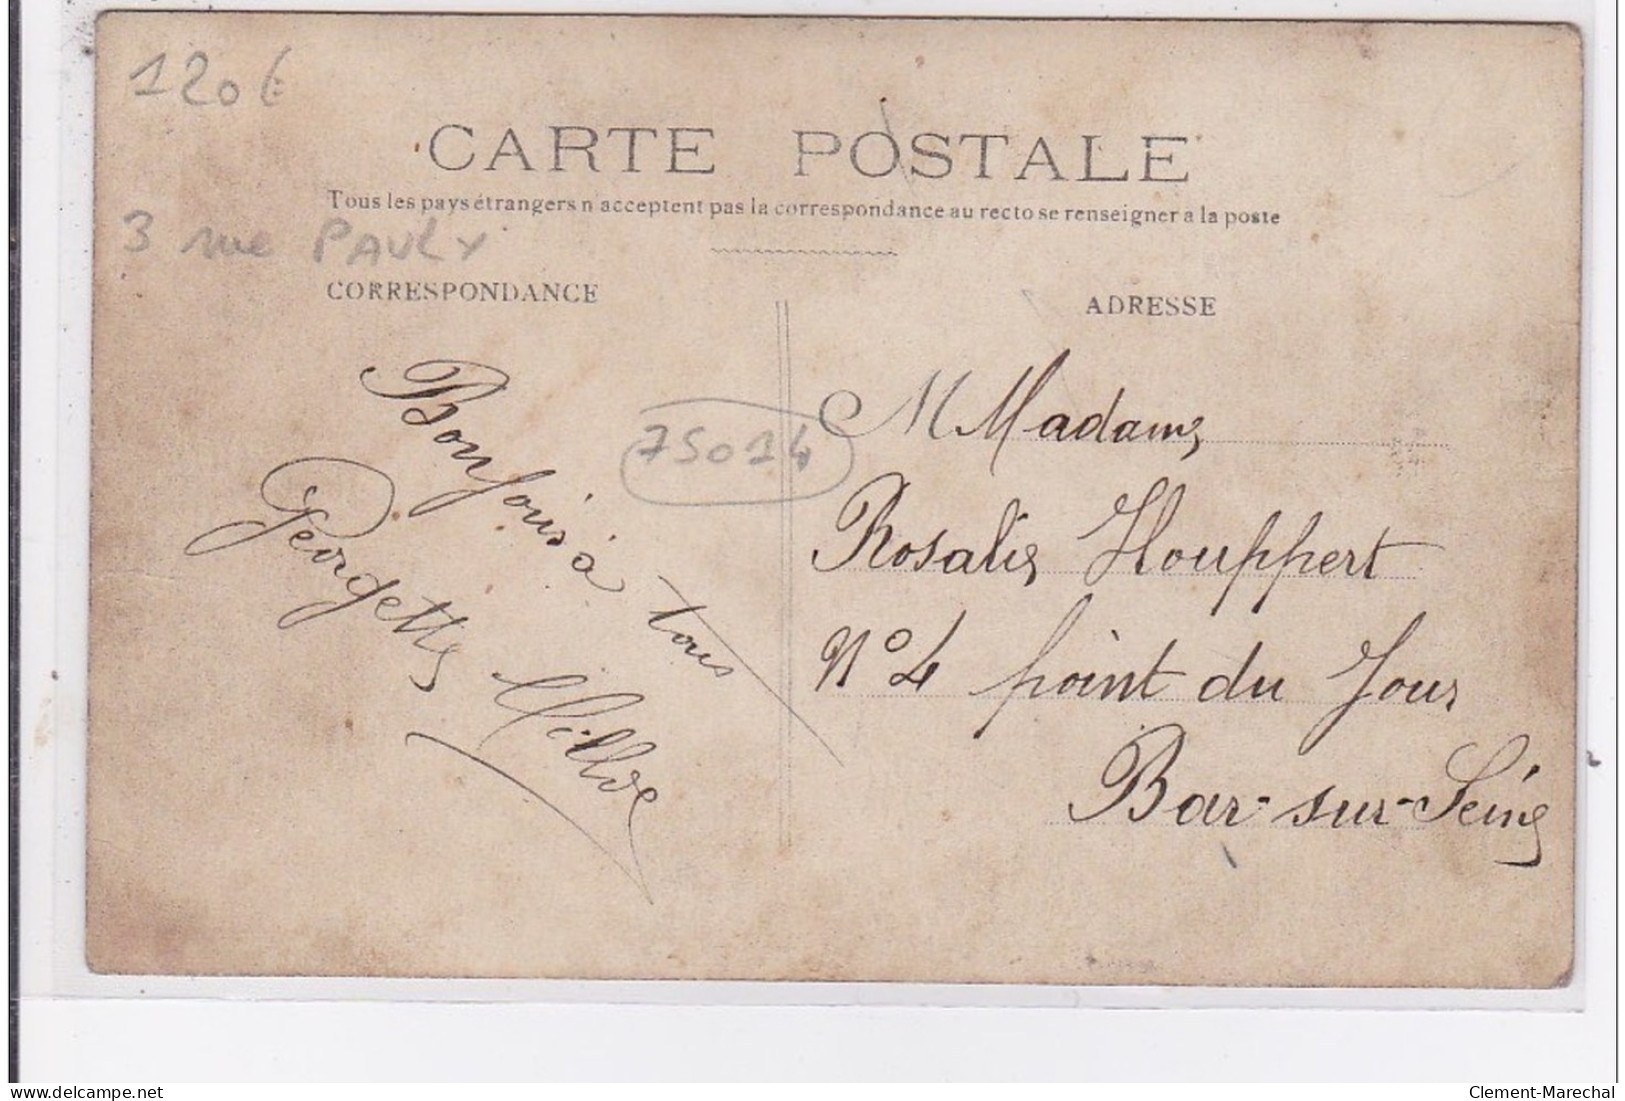 120€
CARTE POSTALE
Tous les pays étrangers n acceptent pas la correspondance au recto se renseigner a la poste
3 rue PAULY
CORRESPONDANCE
Bonjours à tous
Georgette
75014
ADRESSE
M Madame
Rosalie Houppert
N° 4 point du Jour
Bar-sur-Seine
delcampe.net
Clement-Marechal